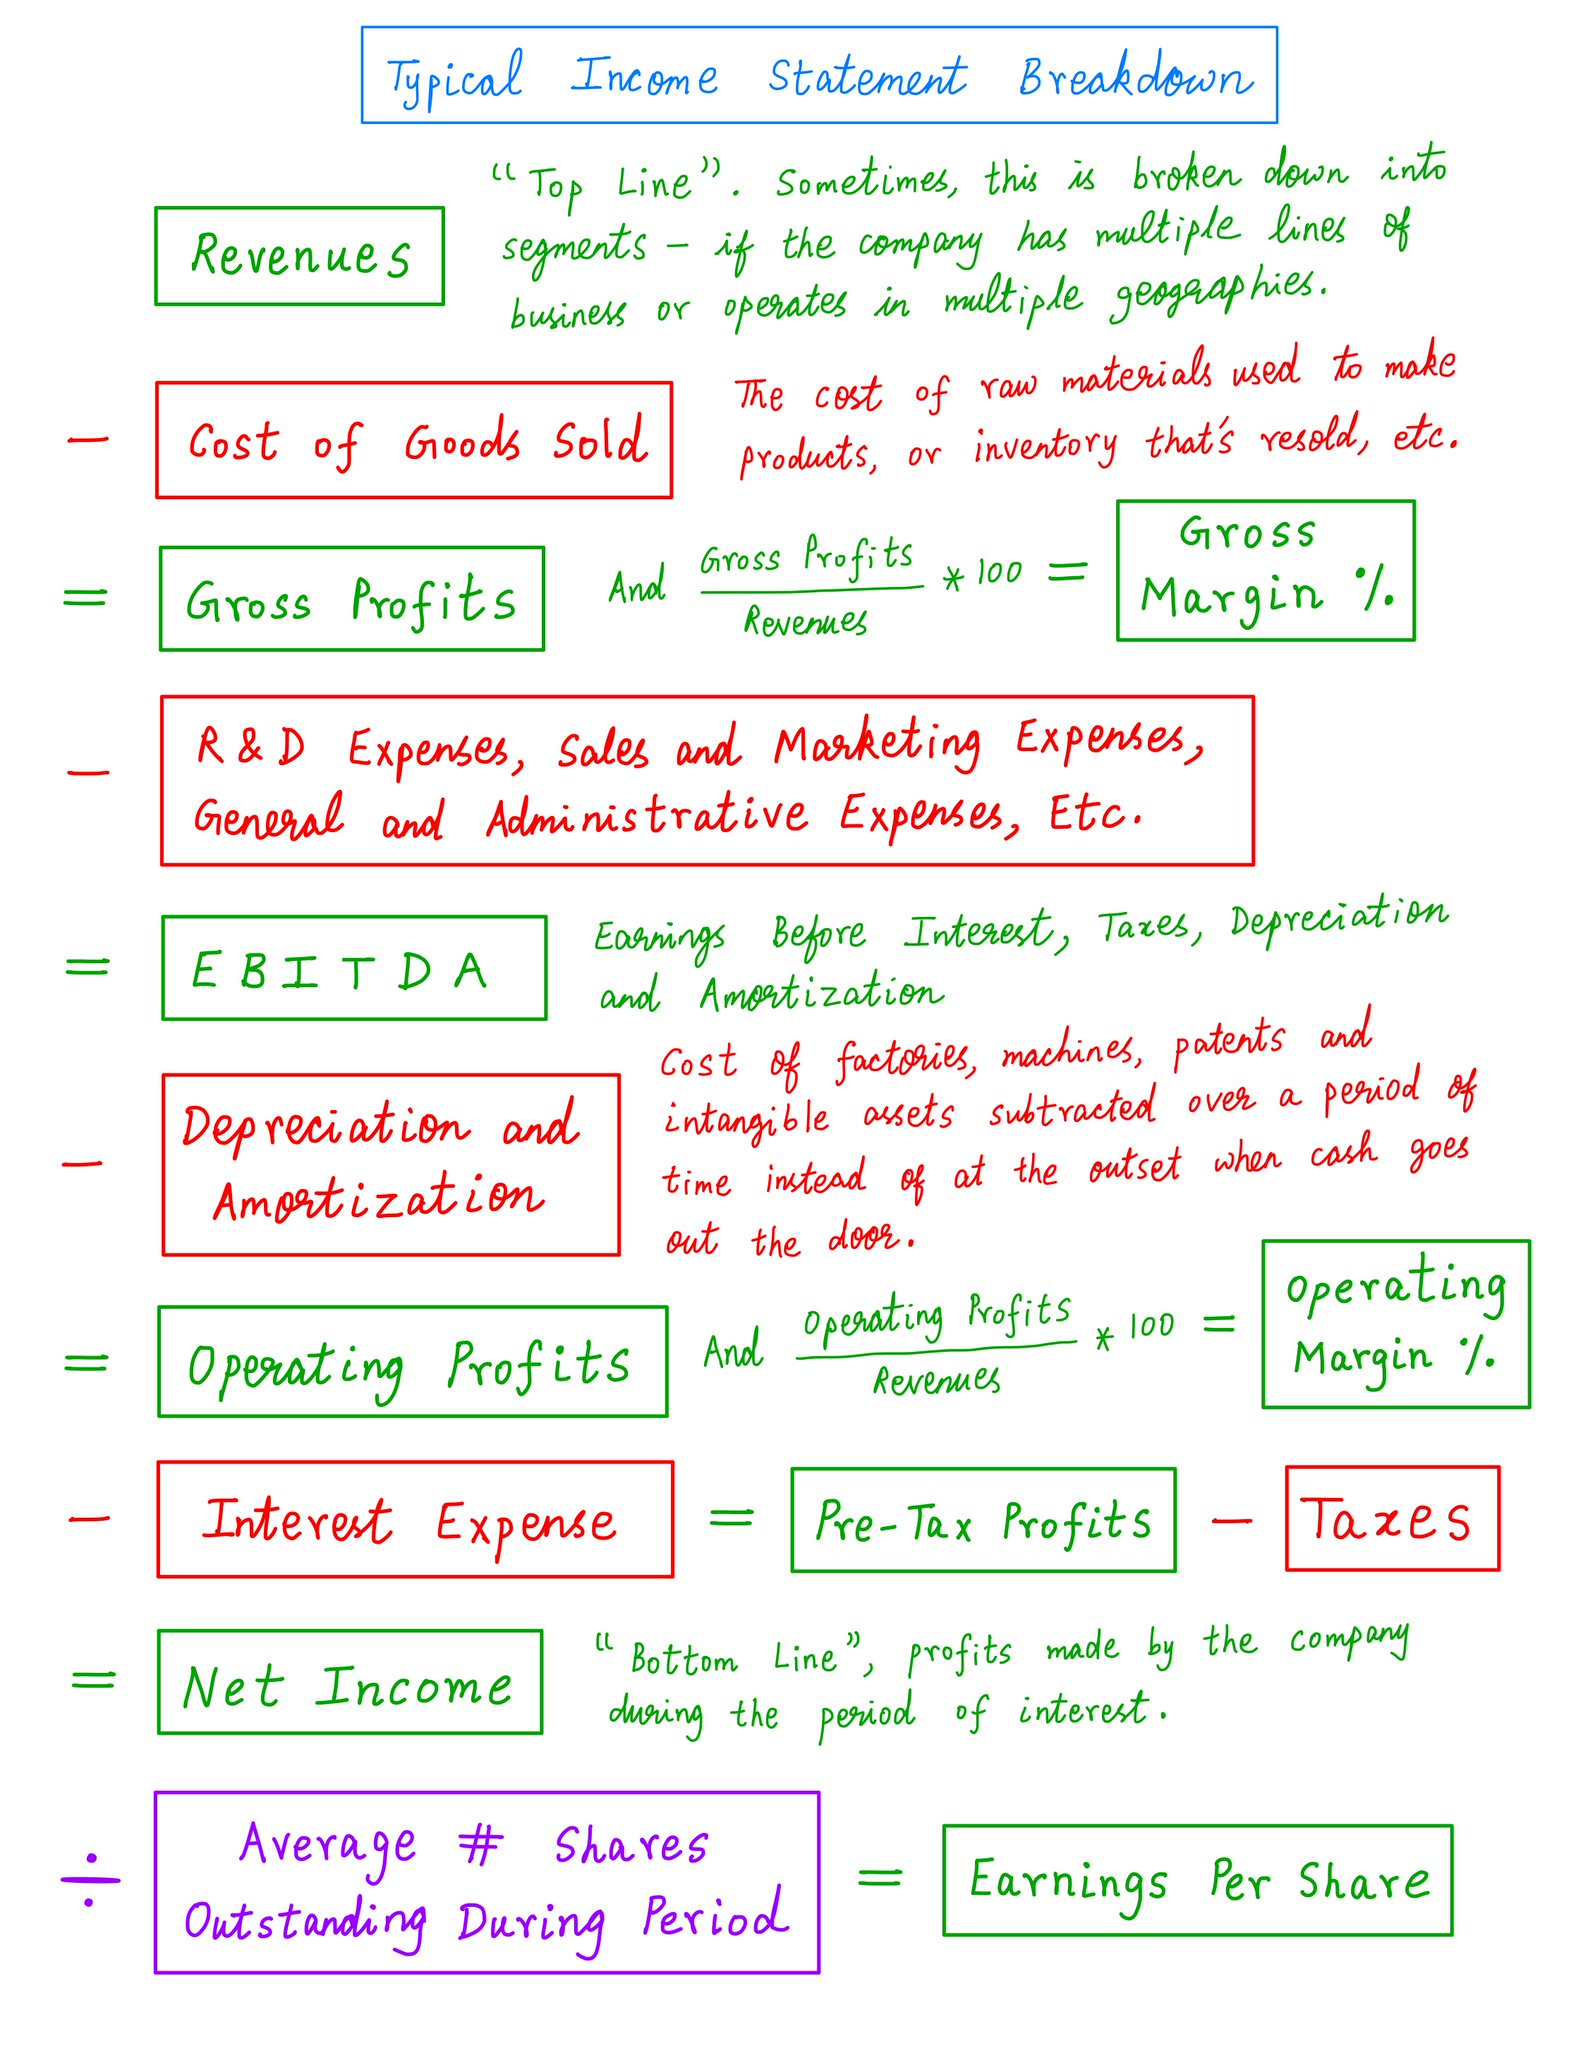 Typical Income Statement Breakdown
"Top Line". Sometimes, this is broken down into
Revenues
segments - if the company has multiple lines of
business or operates in multiple geographies.
The cost of raw materials used to make
- Cost of Goods Sold
products, or inventory that's resold, etc.
= Gross Profits And Gross Profits / Revenues * 100 = Gross
Margin %
R & D Expenses, Sales and Marketing Expenses,
-
General and Administrative Expenses, Etc.
= EBITDA
Earnings Before Interest, Taxes, Depreciation
and Amortization
- Depreciation and
Amortization
Cost of factories, machines, patents and
intangible assets subtracted over a period of
time instead of at the outset when cash goes
out the door.
= Operating Profits And Operating Profits / Revenues * 100 = Operating
Margin %
- Interest Expense = Pre-Tax Profits - Taxes
= Net Income
"Bottom Line", profits made by the company
during the period of interest.
÷ Average # Shares
Outstanding During Period
= Earnings Per Share